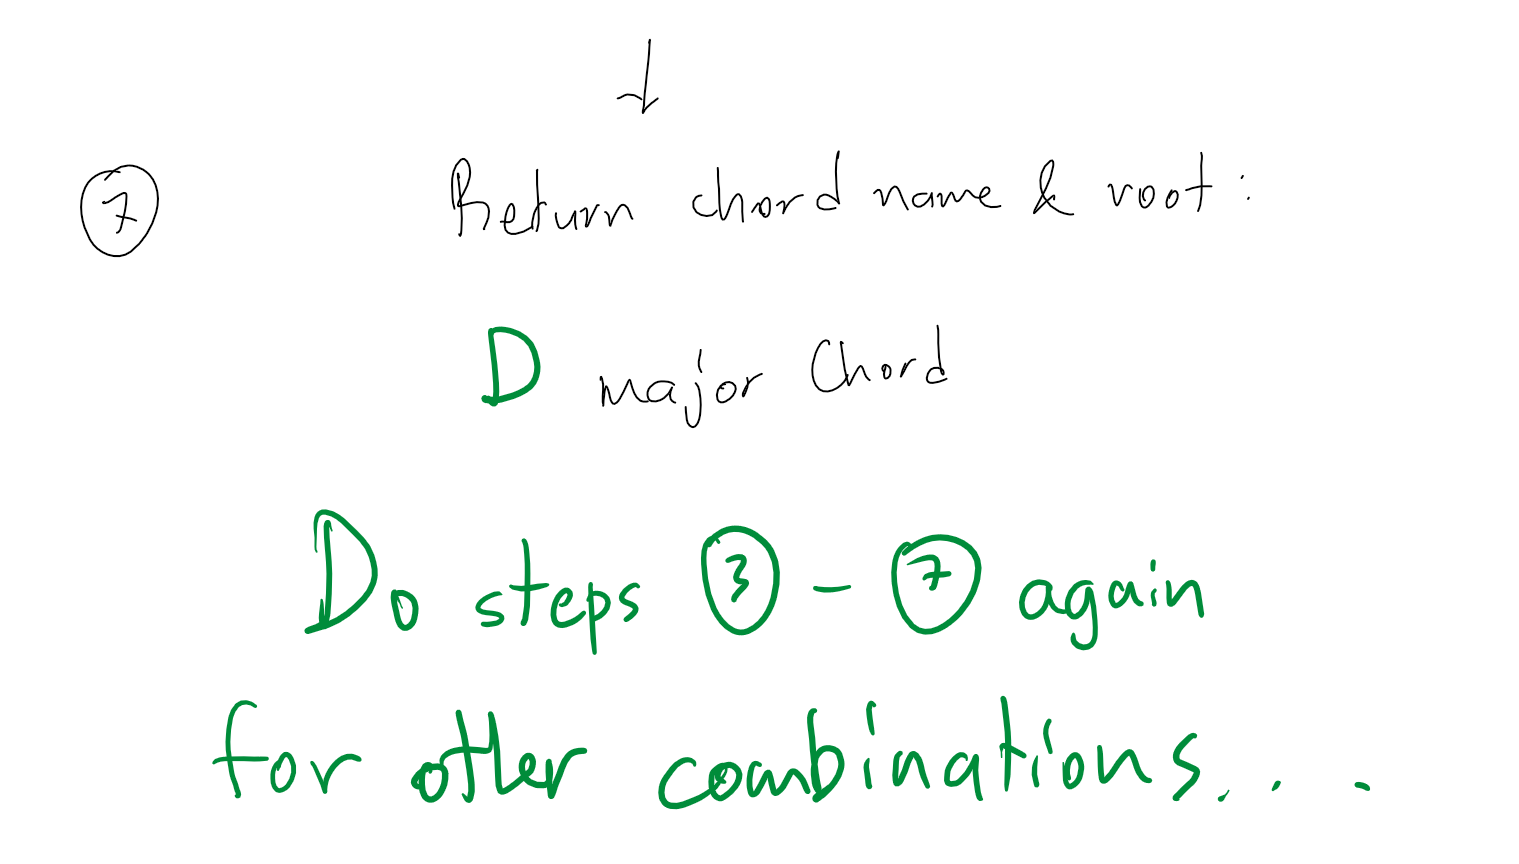 ⑦ Return chord name & root:
D major Chord
Do steps ③ - ⑦ again
for other combinations...